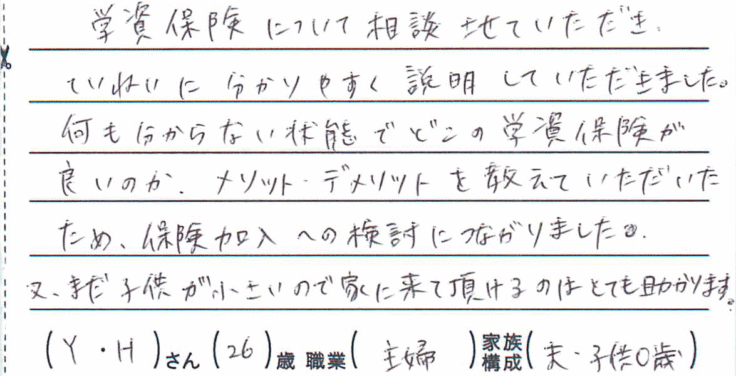 学資保険について相談させていただき、
ていねいに分かりやすく説明していただきました。
何も分からない状態でどこの学資保険が
良いのか、メリット・デメリットを教えていただいた
ため、保険加入への検討につながりました。
又、まだ子供が小さいので家に来て頂けるのはとても助かります。
(Y・H)さん(26)歳 職業(主婦)家族構成(夫・子供0歳)